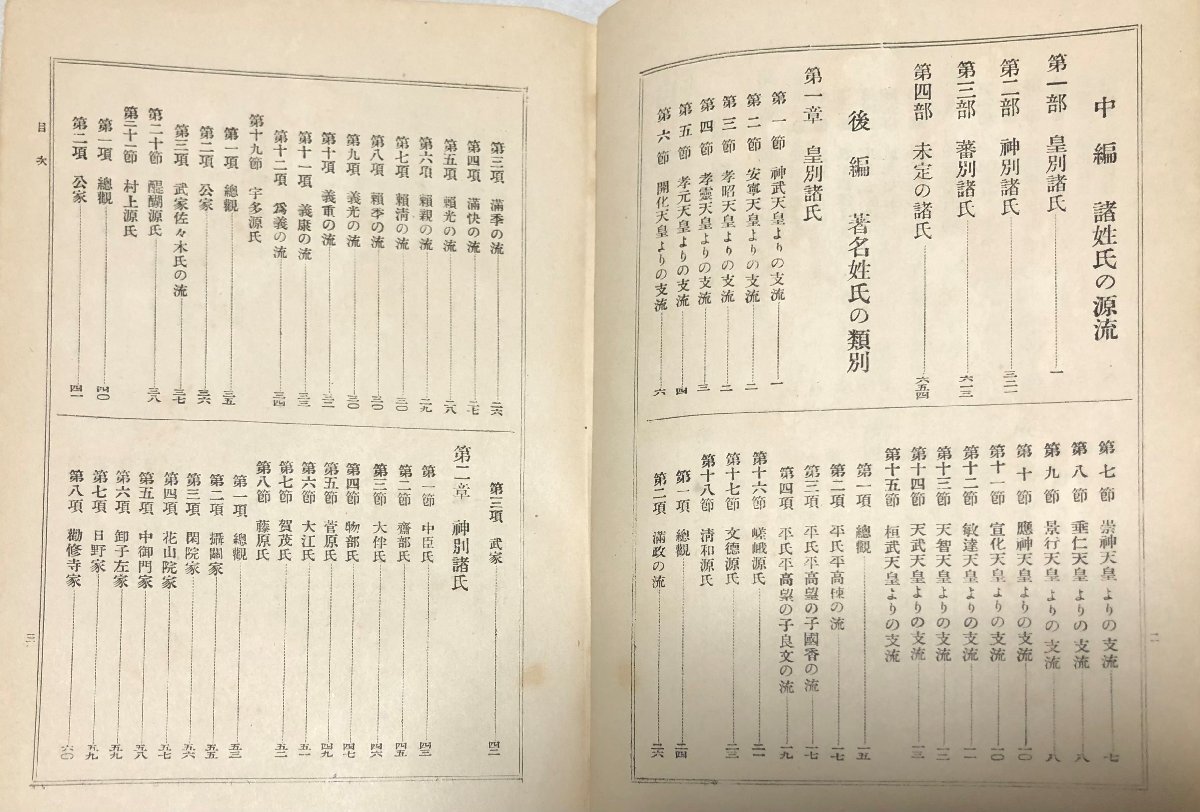 中編 諸姓氏の源流
第一部 皇別諸氏 一
第二部 神別諸氏 三二一
第三部 蕃別諸氏 六一三
第四部 未定の諸氏 六五四
後編 著名姓氏の類別
第一章 皇別諸氏
第一節 神武天皇よりの支流 一
第二節 安寧天皇よりの支流 二
第三節 孝昭天皇よりの支流 二
第四節 孝靈天皇よりの支流 三
第五節 孝元天皇よりの支流 四
第六節 開化天皇よりの支流 六
第七節 崇神天皇よりの支流 七
第八節 垂仁天皇よりの支流 八
第九節 景行天皇よりの支流 八
第十節 應神天皇よりの支流 一〇
第十一節 宣化天皇よりの支流 一〇
第十二節 敏達天皇よりの支流 一一
第十三節 天智天皇よりの支流 一二
第十四節 天武天皇よりの支流 一三
第十五節 桓武天皇よりの支流
第一項 總觀 一五
第二項 平氏平高棟の流 一七
第三項 平氏平高望の子國香の流 一七
第四項 平氏平高望の子良文の流 一九
第十六節 嵯峨源氏 二一
第十七節 文德源氏 二三
第十八節 淸和源氏
第一項 總觀 二四
第二項 滿政の流 二六
二
第三項 滿季の流 二六
第四項 滿快の流 二七
第五項 賴光の流 二八
第六項 賴親の流 二九
第七項 賴淸の流 三〇
第八項 賴季の流 三〇
第九項 義光の流 三〇
第十項 義重の流 三二
第十一項 義康の流 三三
第十二項 爲義の流 三四
第十九節 宇多源氏
第一項 總觀 三五
第二項 公家 三六
第三項 武家佐々木氏の流 三七
第二十節 醍醐源氏 三八
第二十一節 村上源氏
第一項 總觀 四〇
第二項 公家 四一
第三項 武家 四二
第二章 神別諸氏
第一節 中臣氏 四三
第二節 齋部氏 四五
第三節 大伴氏 四六
第四節 物部氏 四七
第五節 菅原氏 四九
第六節 大江氏 五一
第七節 賀茂氏 五二
第八節 藤原氏
第一項 總觀 五三
第二項 攝關家 五五
第三項 閑院家 五六
第四項 花山院家 五七
第五項 中御門家 五八
第六項 御子左家 五九
第七項 日野家 五九
第八項 勸修寺家 六〇
目次
三